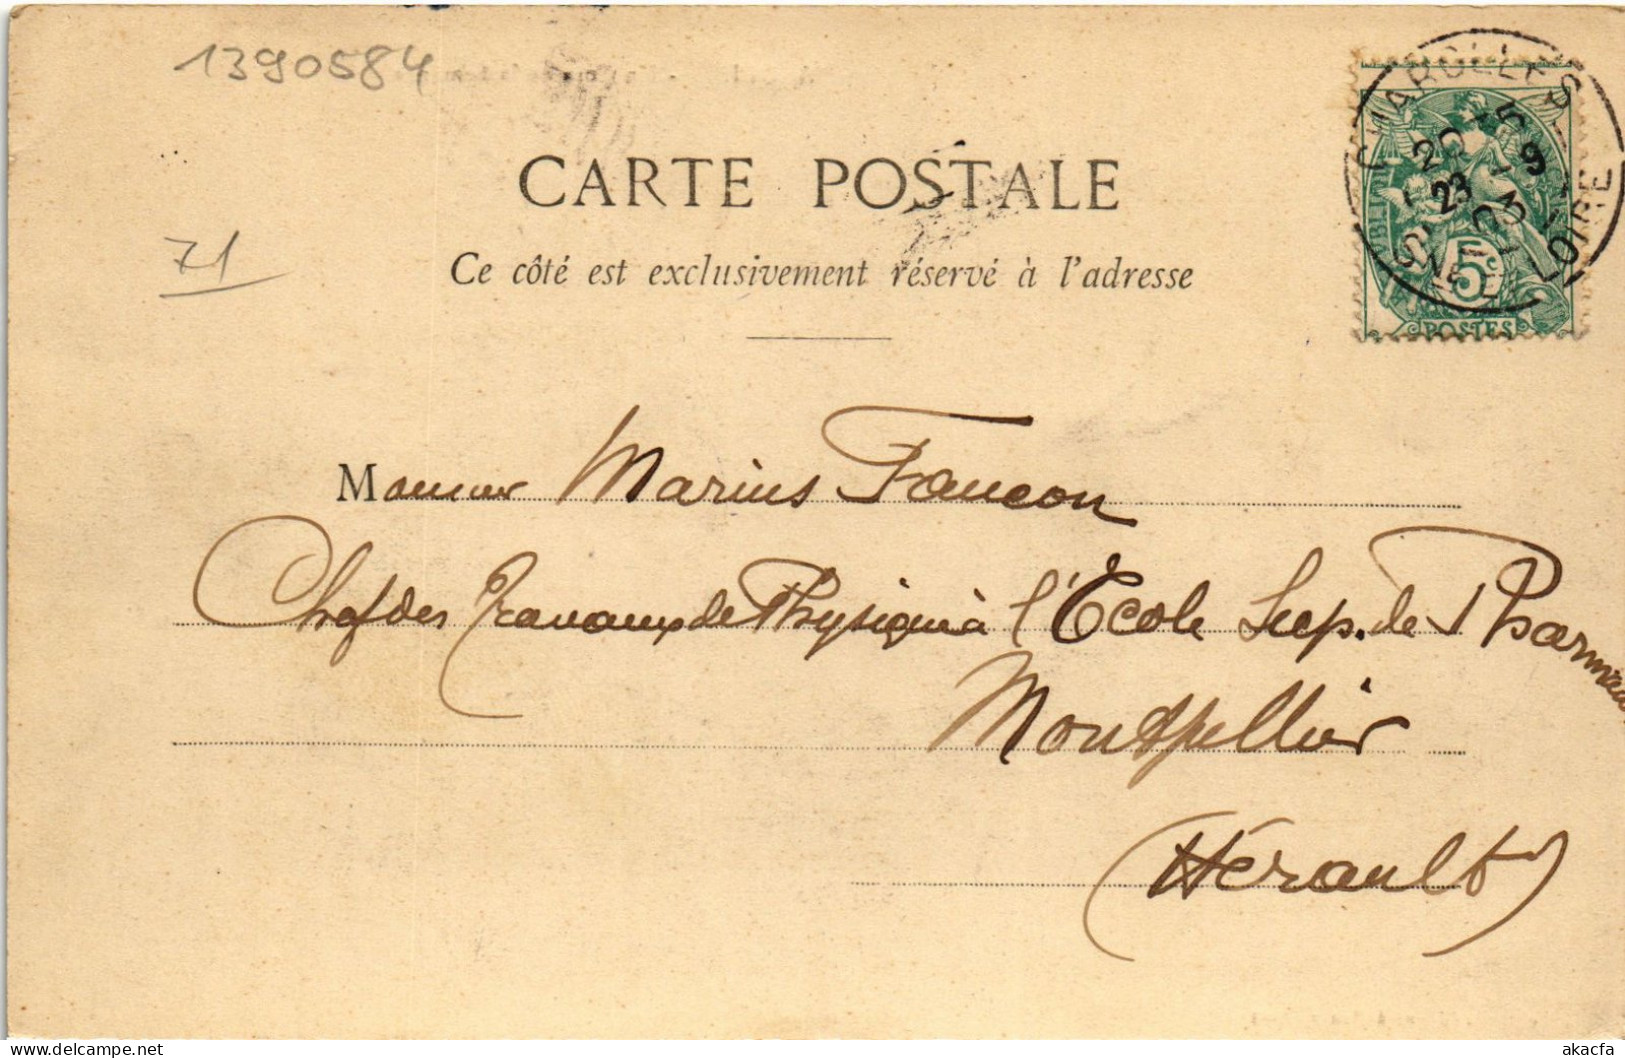 1390584
CHAROLLES
20 15
23 -9
03
SNE ET LOIRE
5c
POSTES
CARTE POSTALE
71
Ce côté est exclusivement réservé à l'adresse
Monsieur Marius Faucon
Chef des Travaux de Physique à l'École Sup. de Pharmacie
Montpellier
(Hérault)
akacfa